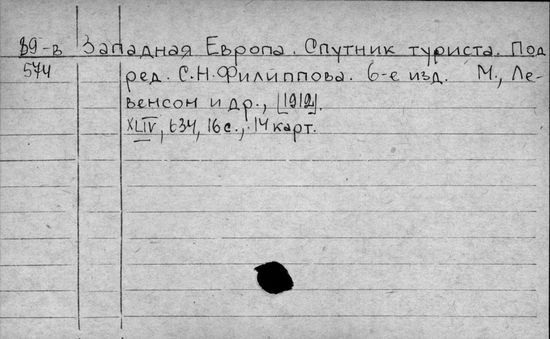 89-в Западная Европа. Спутник туриста. Под
574 ред. С.Н.Филиппова. 6-е изд. М., Ле-
венсон и др., [1912].
XLIV, 634, 16 с., 14 карт.